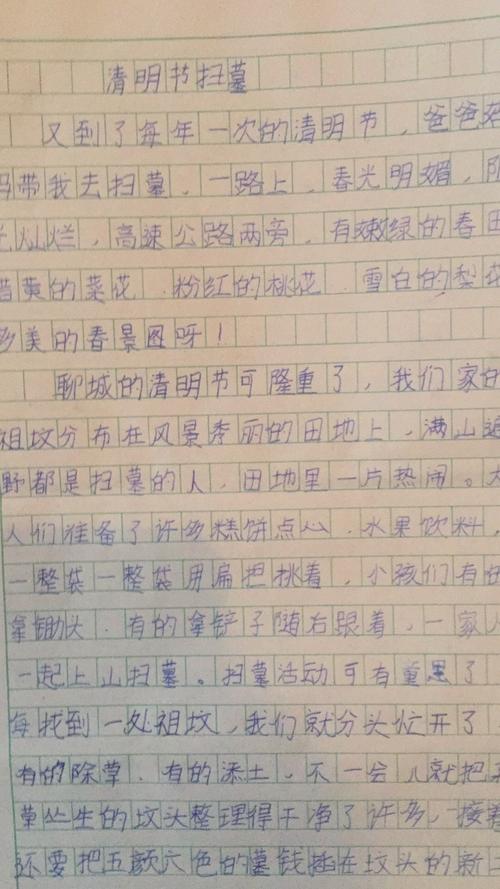 清明节扫墓
又到了每年一次的清明节，爸爸
妈带我去扫墓，一路上，春光明媚，阳
光灿烂，高速公路两旁，有嫩绿的春田
黄的菜花、粉红的桃花、雪白的梨花
多美的春景图呀！
聊城的清明节可隆重了，我们家的
祖坟分布在风景秀丽的田地上，满山遍
野都是扫墓的人，田地里一片热闹。大
人们准备了许多糕饼点心、水果饮料，
一整袋一整袋用扁把挑着，小孩们有的
拿锄头、有的拿铲子随右跟着，一家人
一起上山扫墓。扫墓活动可有重思了
每找到一处祖坟，我们就分头忙开了
有的除草、有的添土，不一会儿就把
草丛生的坟头整理得干净了许多，接着
还要把五颜六色的墓钱插在坟头的新